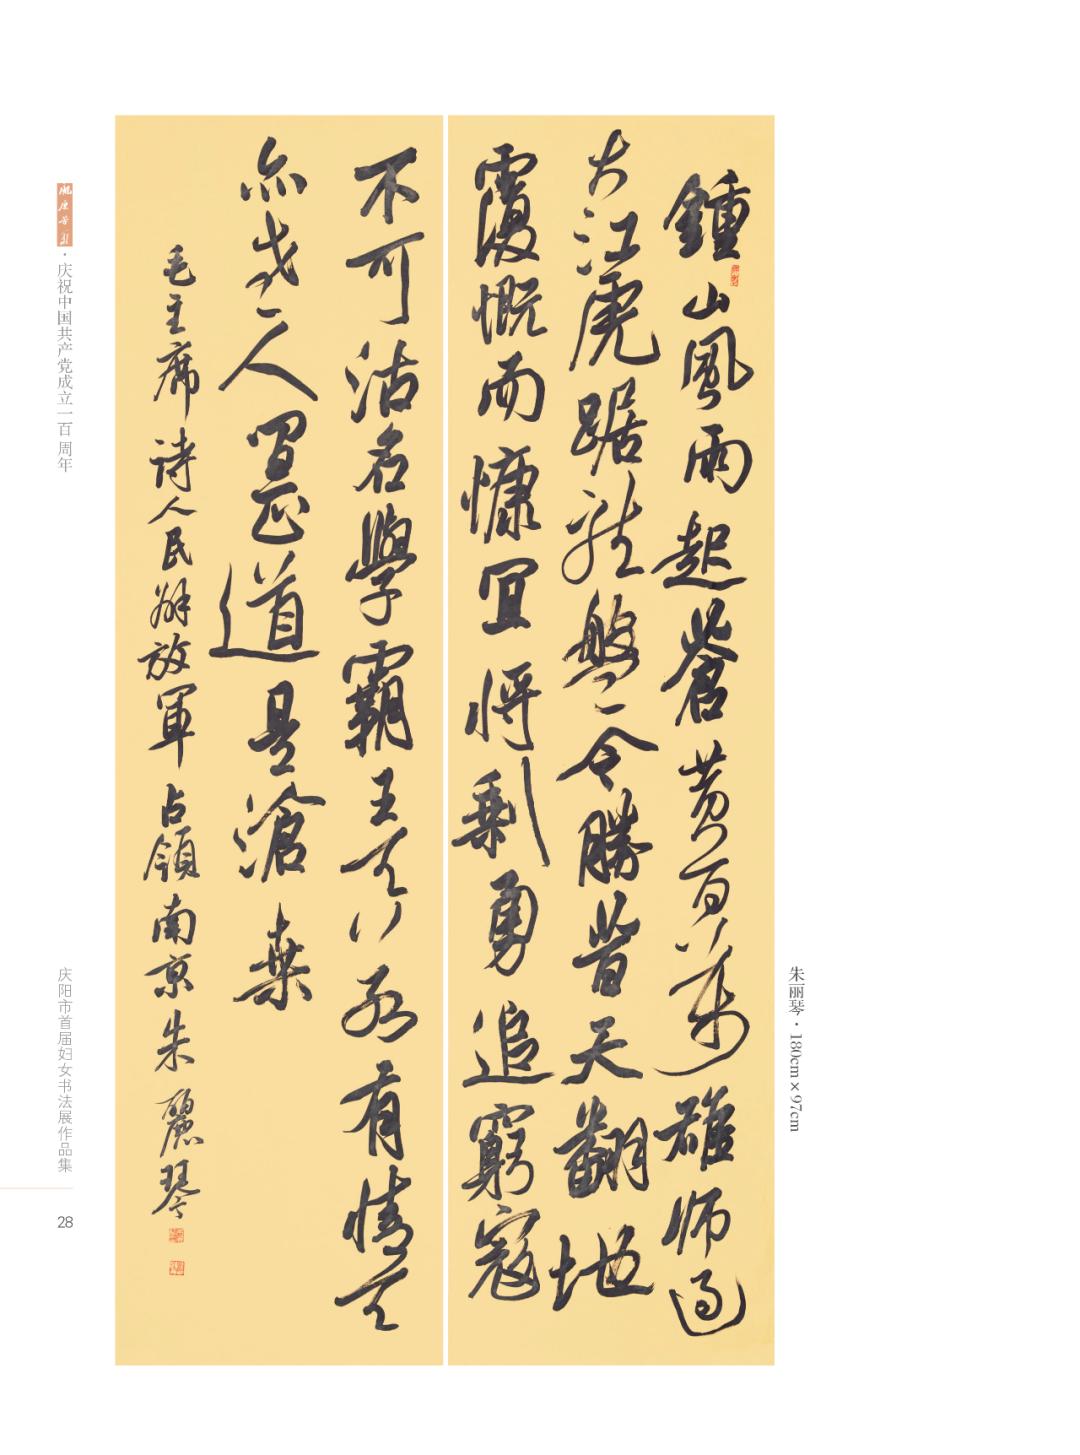 朱丽琴·180cm×97cm
鍾山風雨起蒼黄百萬雄師過
大江虎踞龍盤今勝昔天翻地
覆慨而慷宜將剩勇追窮寇
不可沽名學霸王天若有情天
亦老人間正道是滄桑
毛主席诗人民解放軍占領南京朱麗琴
·庆祝中国共产党成立一百周年
庆阳市首届妇女书法展作品集
28